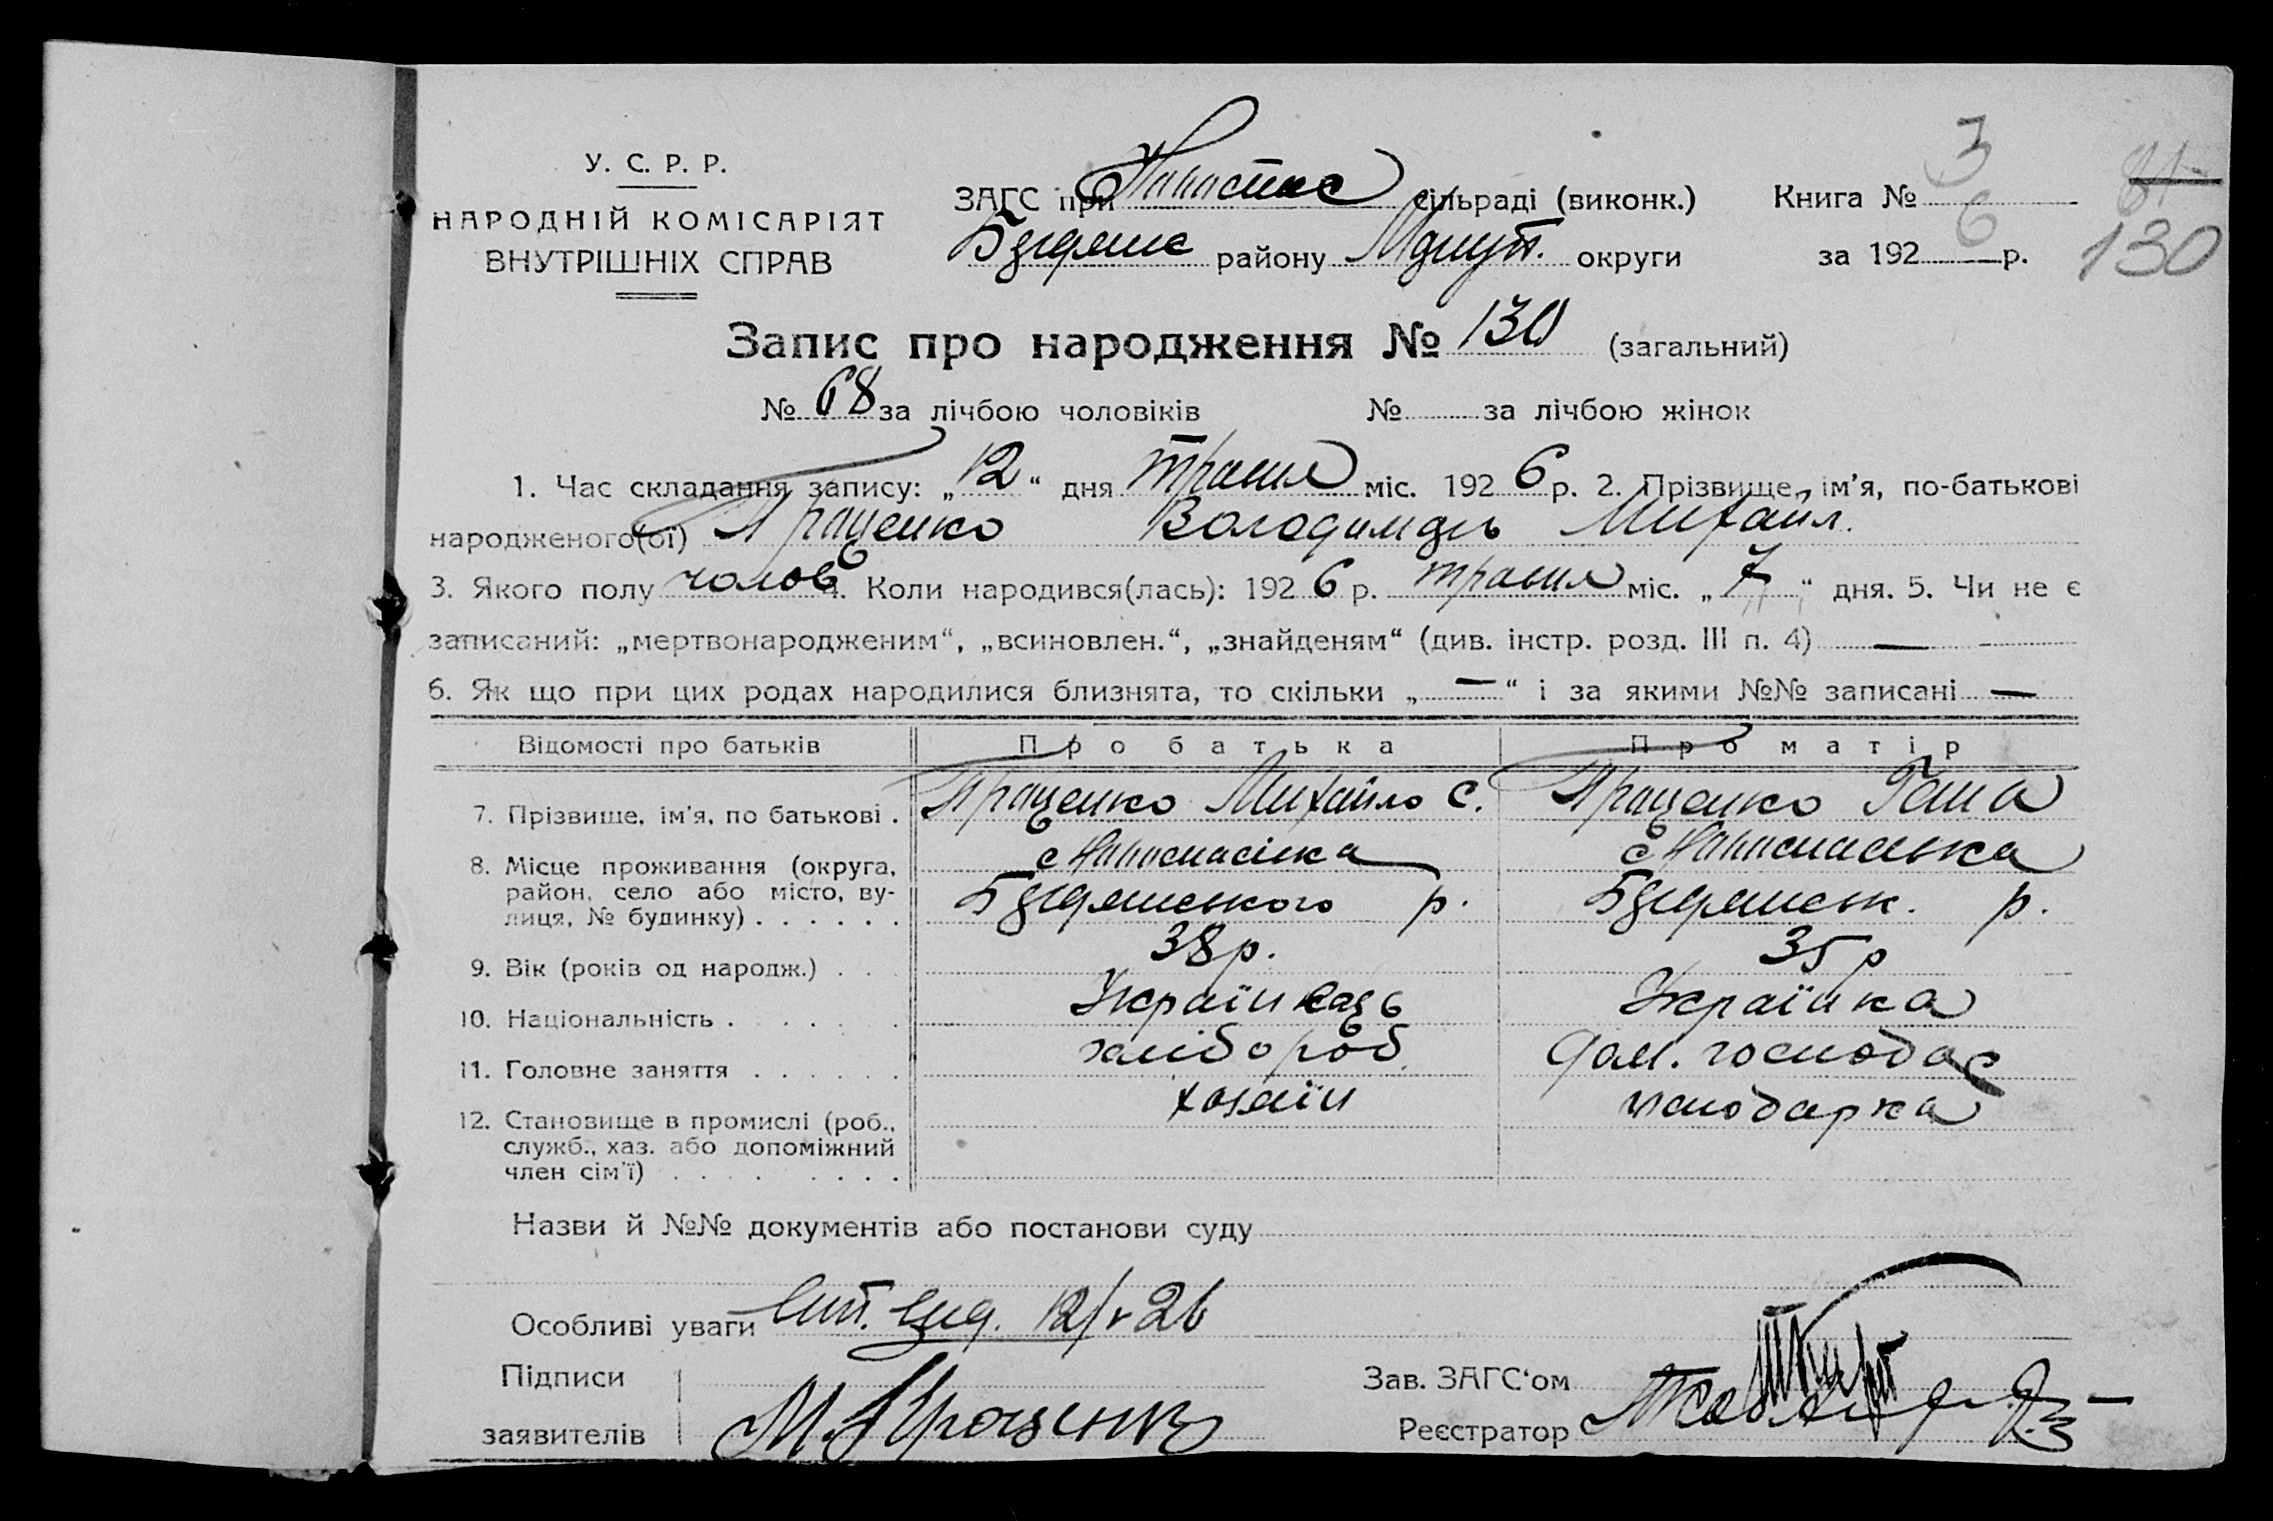 У. С. Р. Р.
НАРОДНІЙ КОМІСАРІЯТ
ВНУТРІШНІХ СПРАВ
ЗАГС при сільраді (виконк.)
району округи
Книга № 3
за 1926 р.
81
130
Запис про народження № 130 (загальний)
№ 68 за лічбою чоловіків № за лічбою жінок
1. Час складання запису: „12“ дня травня міс. 1926 р. 2. Прізвище, ім'я, по-батькові
народженого(ої) Проценко Володимир Михайл.
3. Якого полу чолов 4. Коли народився(лась): 1926 р. травня міс. „7“ дня. 5. Чи не є
записаний: „мертвонародженим“, „всиновлен.“, „знайденям“ (див. інстр. розд. III п. 4) —
6. Як що при цих родах народилися близнята, то скільки „—“ і за якими №№ записані —
Відомості про батьків Про батька Про матір
7. Прізвище, ім'я, по батькові . Проценко Михайло С. Проценко Ганна
8. Місце проживання (округа,
район, село або місто, ву-
лиця, № будинку) . . . . . . р. р.
9. Вік (років од народж.) . . . 38 р. 35 р
10. Національність . . . . . . Українець Українка
11. Головне заняття . . . . . . хлібороб дом. господар
12. Становище в промислі (роб., хазяїн господарка
служб., хаз. або допоміжний
член сім'ї) . . . . . . . .
Назви й №№ документів або постанови суду
Особливі уваги 12/v 26
Підписи
заявителів М. Проценко
Зав. ЗАГС'ом
Реєстратор